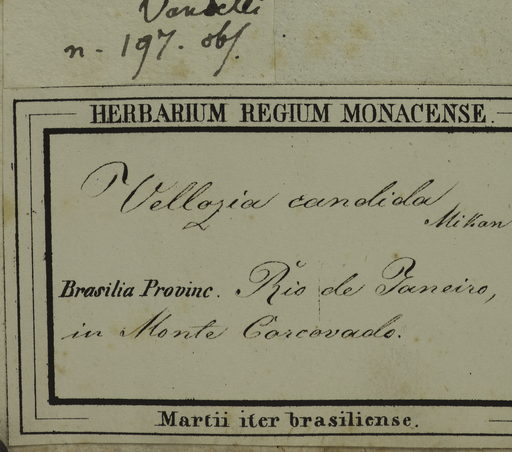 Vandelli
n. 197. obs.
HERBARIUM REGIUM MONACENSE.
Vellozia candida
Mikan
Brasilia Provinc. Rio de Janeiro,
in Monte Corcovado.
Martii iter brasiliense.